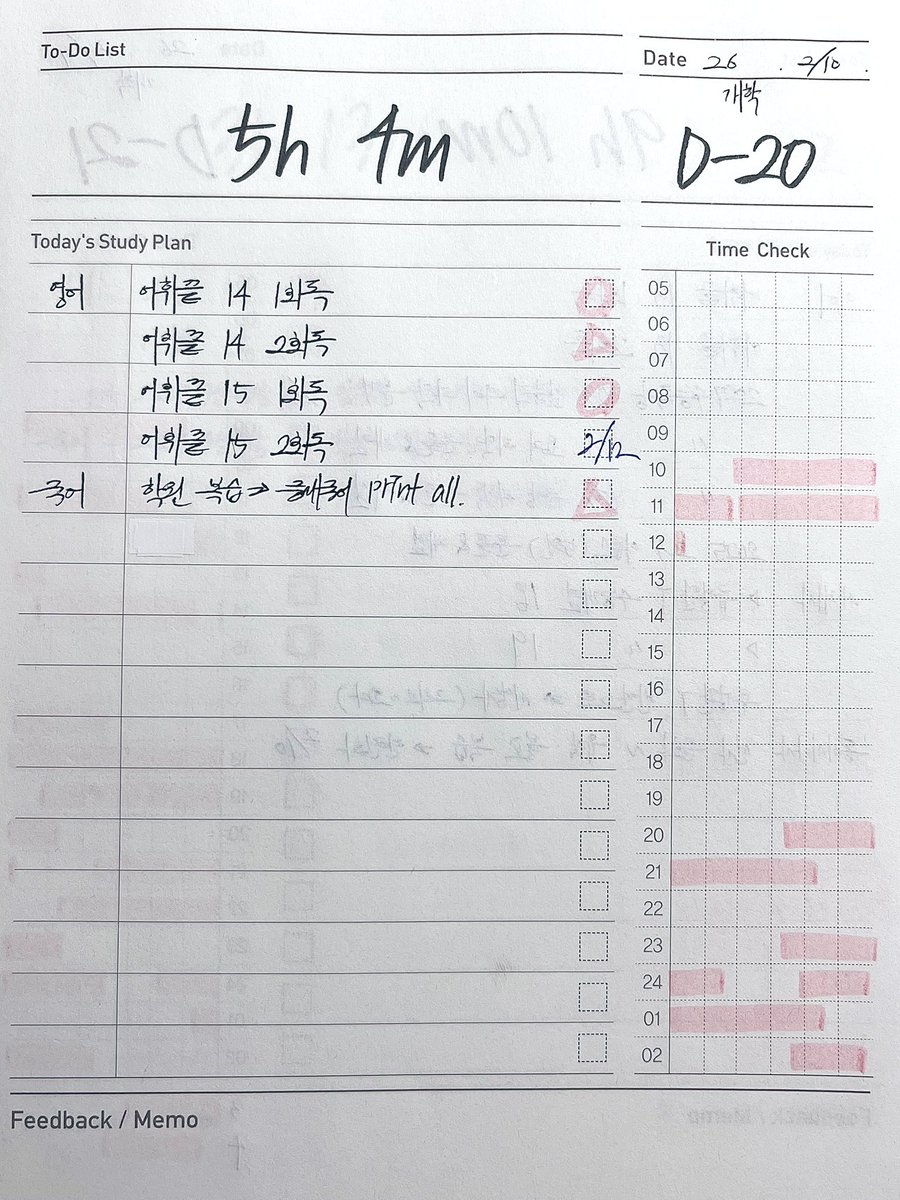 To-Do List
Date 26 . 2/10 .
개학
5h 4m
D-20
Today's Study Plan
Time Check
영어 어휘끝 14 1회독
어휘끝 14 2회독
어휘끝 15 1회독
어휘끝 15 2회독 2/12
국어 학원 복습⇒ print all.
05
06
07
08
09
10
11
12
13
14
15
16
17
18
19
20
21
22
23
24
01
02
Feedback / Memo